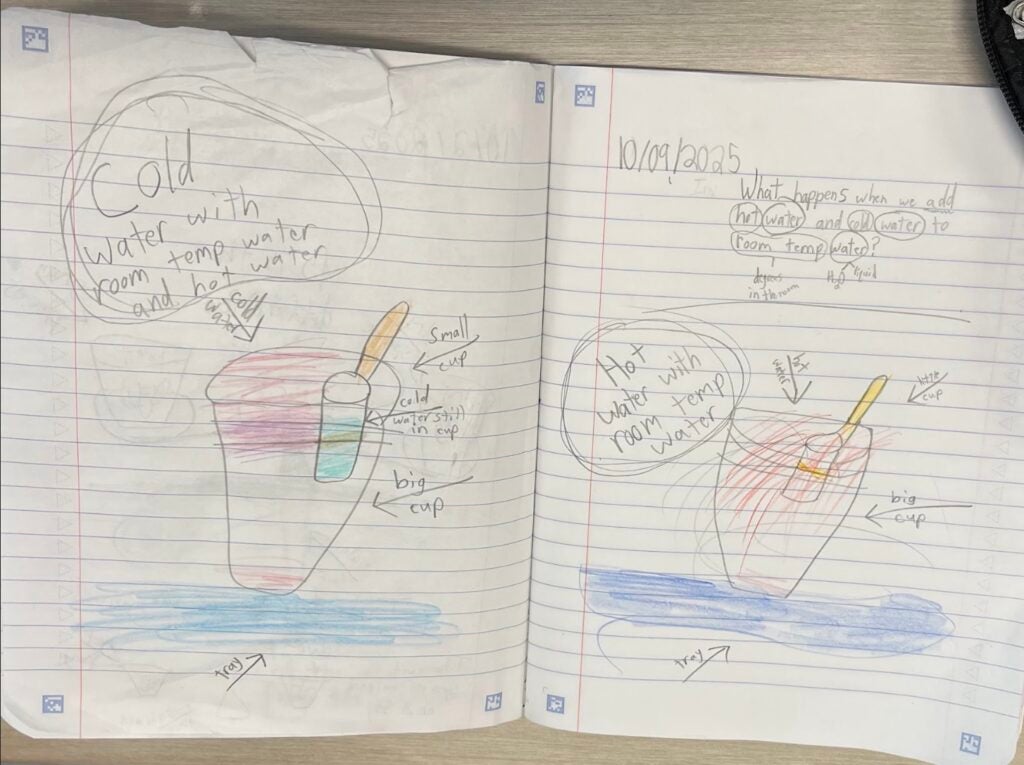 Cold
water with
room temp water
and hot water
cold
water
small
cup
cold
water still
in cup
big
cup
tray
10/09/2025
What happens when we add
hot water and cold water to
room temp water?
degrees
in the room
H2O
liquid
Hot
water with
room temp
water
hot
water
cup
big
cup
tray